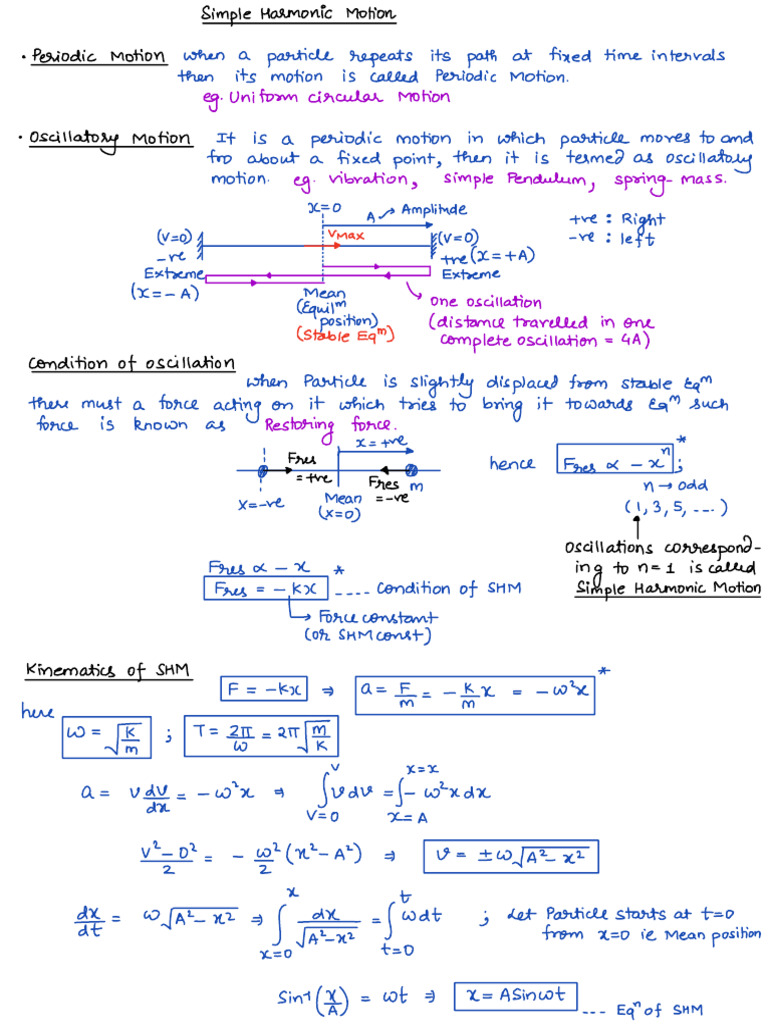 Simple Harmonic Motion
• Periodic Motion when a particle repeats its path at fixed time intervals
then its motion is called Periodic Motion.
eg. Uniform circular Motion
• Oscillatory Motion It is a periodic motion in which particle moves to and
fro about a fixed point, then it is termed as oscillatory
motion. eg. vibration, simple Pendulum, spring-mass.
x=0
A → Amplitude
+ve : Right
-ve : left
(V=0) VMax (V=0)
-ve +ve (x=+A)
Extreme Extreme
(x=-A)
Mean
(Equilm
position)
(Stable Eqm)
One oscillation
(distance travelled in one
complete oscillation = 4A)
Condition of oscillation
when Particle is slightly displaced from stable Eqm
there must a force acting on it which tries to bring it towards Eqm such
force is known as Restoring force.
x=+ve
Fres
=+ve
Fres
=-ve
m
x=-ve
Mean
(x=0)
hence Fres ∝ -xⁿ * ;
n→odd
(1, 3, 5, ....)
Oscillations correspond-
ing to n=1 is called
Simple Harmonic Motion
Fres ∝ -x
Fres = -kx * .... Condition of SHM
→ Force constant
(or SHM const)
Kinematics of SHM
F = -kx ⇒ a = F/m = -K/m x = -ω²x *
here
ω = √(K/m) ; T = 2π/ω = 2π√(m/K)
a = v dv/dx = -ω²x ⇒ ∫_{V=0}^{V} v dv = ∫_{x=A}^{x=x} -ω²x dx
(V²-0²)/2 = -ω²/2 (x²-A²) ⇒ v = ±ω√(A²-x²)
dx/dt = ω√(A²-x²) ⇒ ∫_{x=0}^{x} dx/√(A²-x²) = ∫_{t=0}^{t} ωdt ; Let Particle starts at t=0
from x=0 ie Mean position
Sin⁻¹(x/A) = ωt ⇒ x = ASinωt .... Eqⁿ of SHM